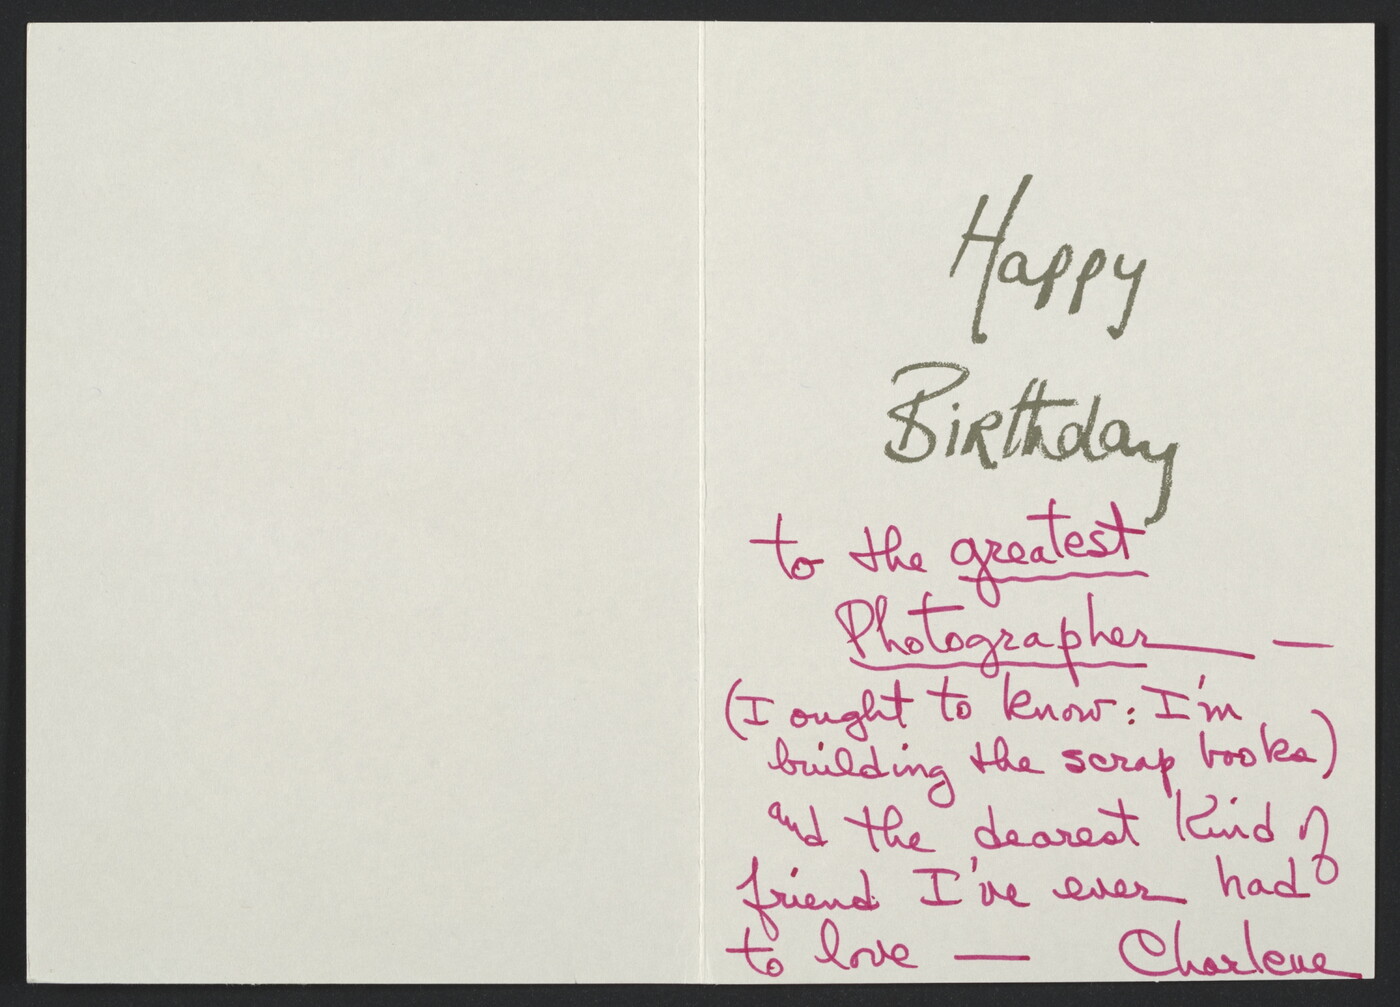 Happy
Birthday
to the greatest
Photographer —
(I ought to know: I'm
building the scrap books)
and the dearest kind of
friend I've ever had
to love — Charlene